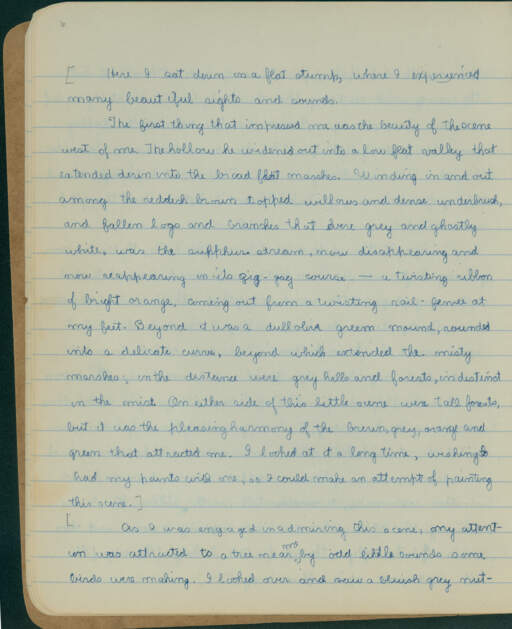 [ Here I sat down on a flat stump, where I experienced
many beautiful sights and sounds.
The first thing that impressed me was the beauty of the scene
west of me. The hollow he widened out into a low flat valley that
extended down into the broad flat marshes. Winding in and out
among the reddish brown topped willows and dense underbrush,
and fallen logs and branches that were grey and ghostly
white, was the sulphur stream, now disappearing and
now reappearing in its zig-zag course — a twisting ribbon
of bright orange, coming out from a twisting rail-fence at
my feet. Beyond it was a dull olive green mound, rounded
into a delicate curve, beyond which extended the misty
marshes; in the distance were grey hills and forests, indestinct
in the mist. On either side of this little scene were tall forests,
but it was the pleasing harmony of the brown, grey, orange and
green that attracted me. I looked at it a long time, wishing I
had my paints with me, so I could make an attempt of painting
this scene.]
[ As I was engaged in admiring this scene, my attent-
ion was attracted to a tree near me by odd little sounds some
birds were making. I looked over and saw a bluish grey nut-